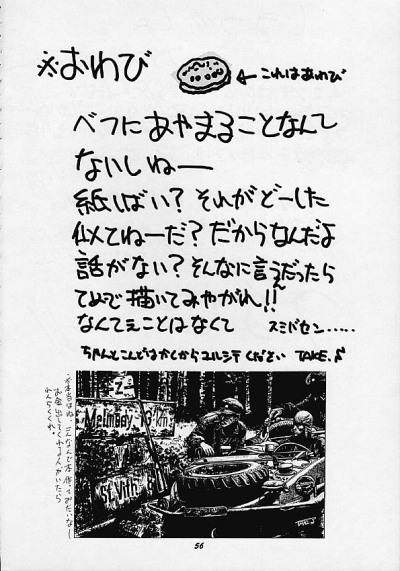 ※おわび
←これはあわび
べつにあやまることなんて
ないしねー
紙しばい?それがどーした
似てねーだ?だからなんだよ
話がない?そんなに言うだったら
てめーで描いてみやがれ!!
なんてぇことはなくて スミマセン.....
ちゃんとこんどはかくからユルシテください TAKE.♪
※本当はね、こんなんで本作ってみたいなし
お金出してくれる人がいたら
れんらくくれ。
Melmbay 13 km
St.Vith
56